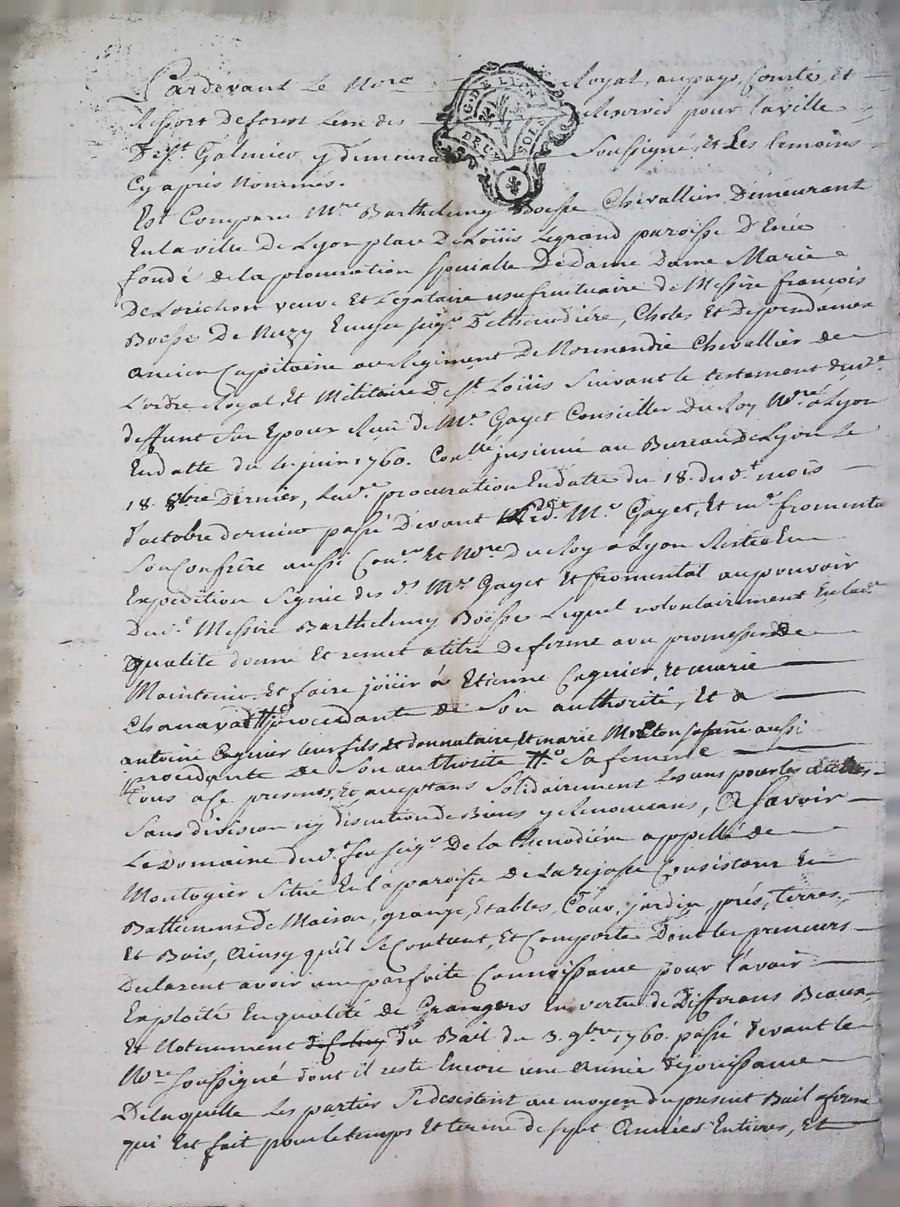 Pardevant Le No.re Royal, au pays, Comté, et
Ressort de forest L'un des Reservés pour la ville
De s.t Galmier y demeurant Soussigné, et Les temoins
Cy apres Nommés.
G. DE LYON
DEUX SOLS
Est Comparu M.re Barthelemy Boësse Chevallier Demeurant
En la ville de Lyon place De Loüis Legrand paroisse D'Enée
fondé de la procuration specialle De Dame Dame Marie
De Lorichon veuve Et Legataire usufructuaire de Messire francois
Boësse De Nuzy Ecuyer seig.r De thenodiere, Choles Et Dependances
ancien Capitaine au Regiment De Normandie Chevallier de
L'ordre Royal, et Militaire De s.t Loüis Suivant le testament dud.t
deffunt Son Epoux Reçu de M.e Gayet Conseiller Du Roy No.re à Lyon
En datte du 4 juin 1760. Con.llé insinué au Bureau De Lyon Le
18. 8bre Dernier, Lad.e procuration En datte du 18. dud.t mois
d'octobre dernier passé Devant led.t M.e Gayet, Et m.e fromental
Son Confrere aussi Con.er Et No.re Du Roy à Lyon Restée En
Expedition Signée des d. M.es Gayet Et fromental au pouvoir
Dud.t Messire Barthelemy Boësse Lequel volontairement En lad.e
qualité donne Et remet a titre de ferme avec promesse de
Maintenir, Et faire joüir à Etienne Cognier, Et marie
Chanavat # procedante de Son authorité, Et a
antoine Cognier leur fils Et donnataire, Et marie sa fame aussi
procedante de Son authorité #. Sa femme
tous a Ce presents, Et acceptans Solidairement Les uns pour les autres
Sans division ny discution de Biens y Renoncans, à savoir
Le Domaine dud.t feu seig.r De la thenodiere appellé de
Montogier Situé En la paroisse de Larajasse Consistant En
Battimens De Maison, grange, Etables, Cour, jardin, prés, terres,
Et Bois, ainsy qu'il se Contient, Et Comporte Dont les preneurs
Declarent avoir une parfaite Connoissance pour l'avoir
Exploité En qualité de Grangers En vertu de Differans Beaux
Et Notamment du Bail du 3. 9bre 1760. passé devant le
No.re soussigné dont il reste Encore une année de joüissance
De laquelle Les parties Se desistent au moyen du present Bail a ferme
qui Est fait pour le temps Et terme de sept années Entieres, Et